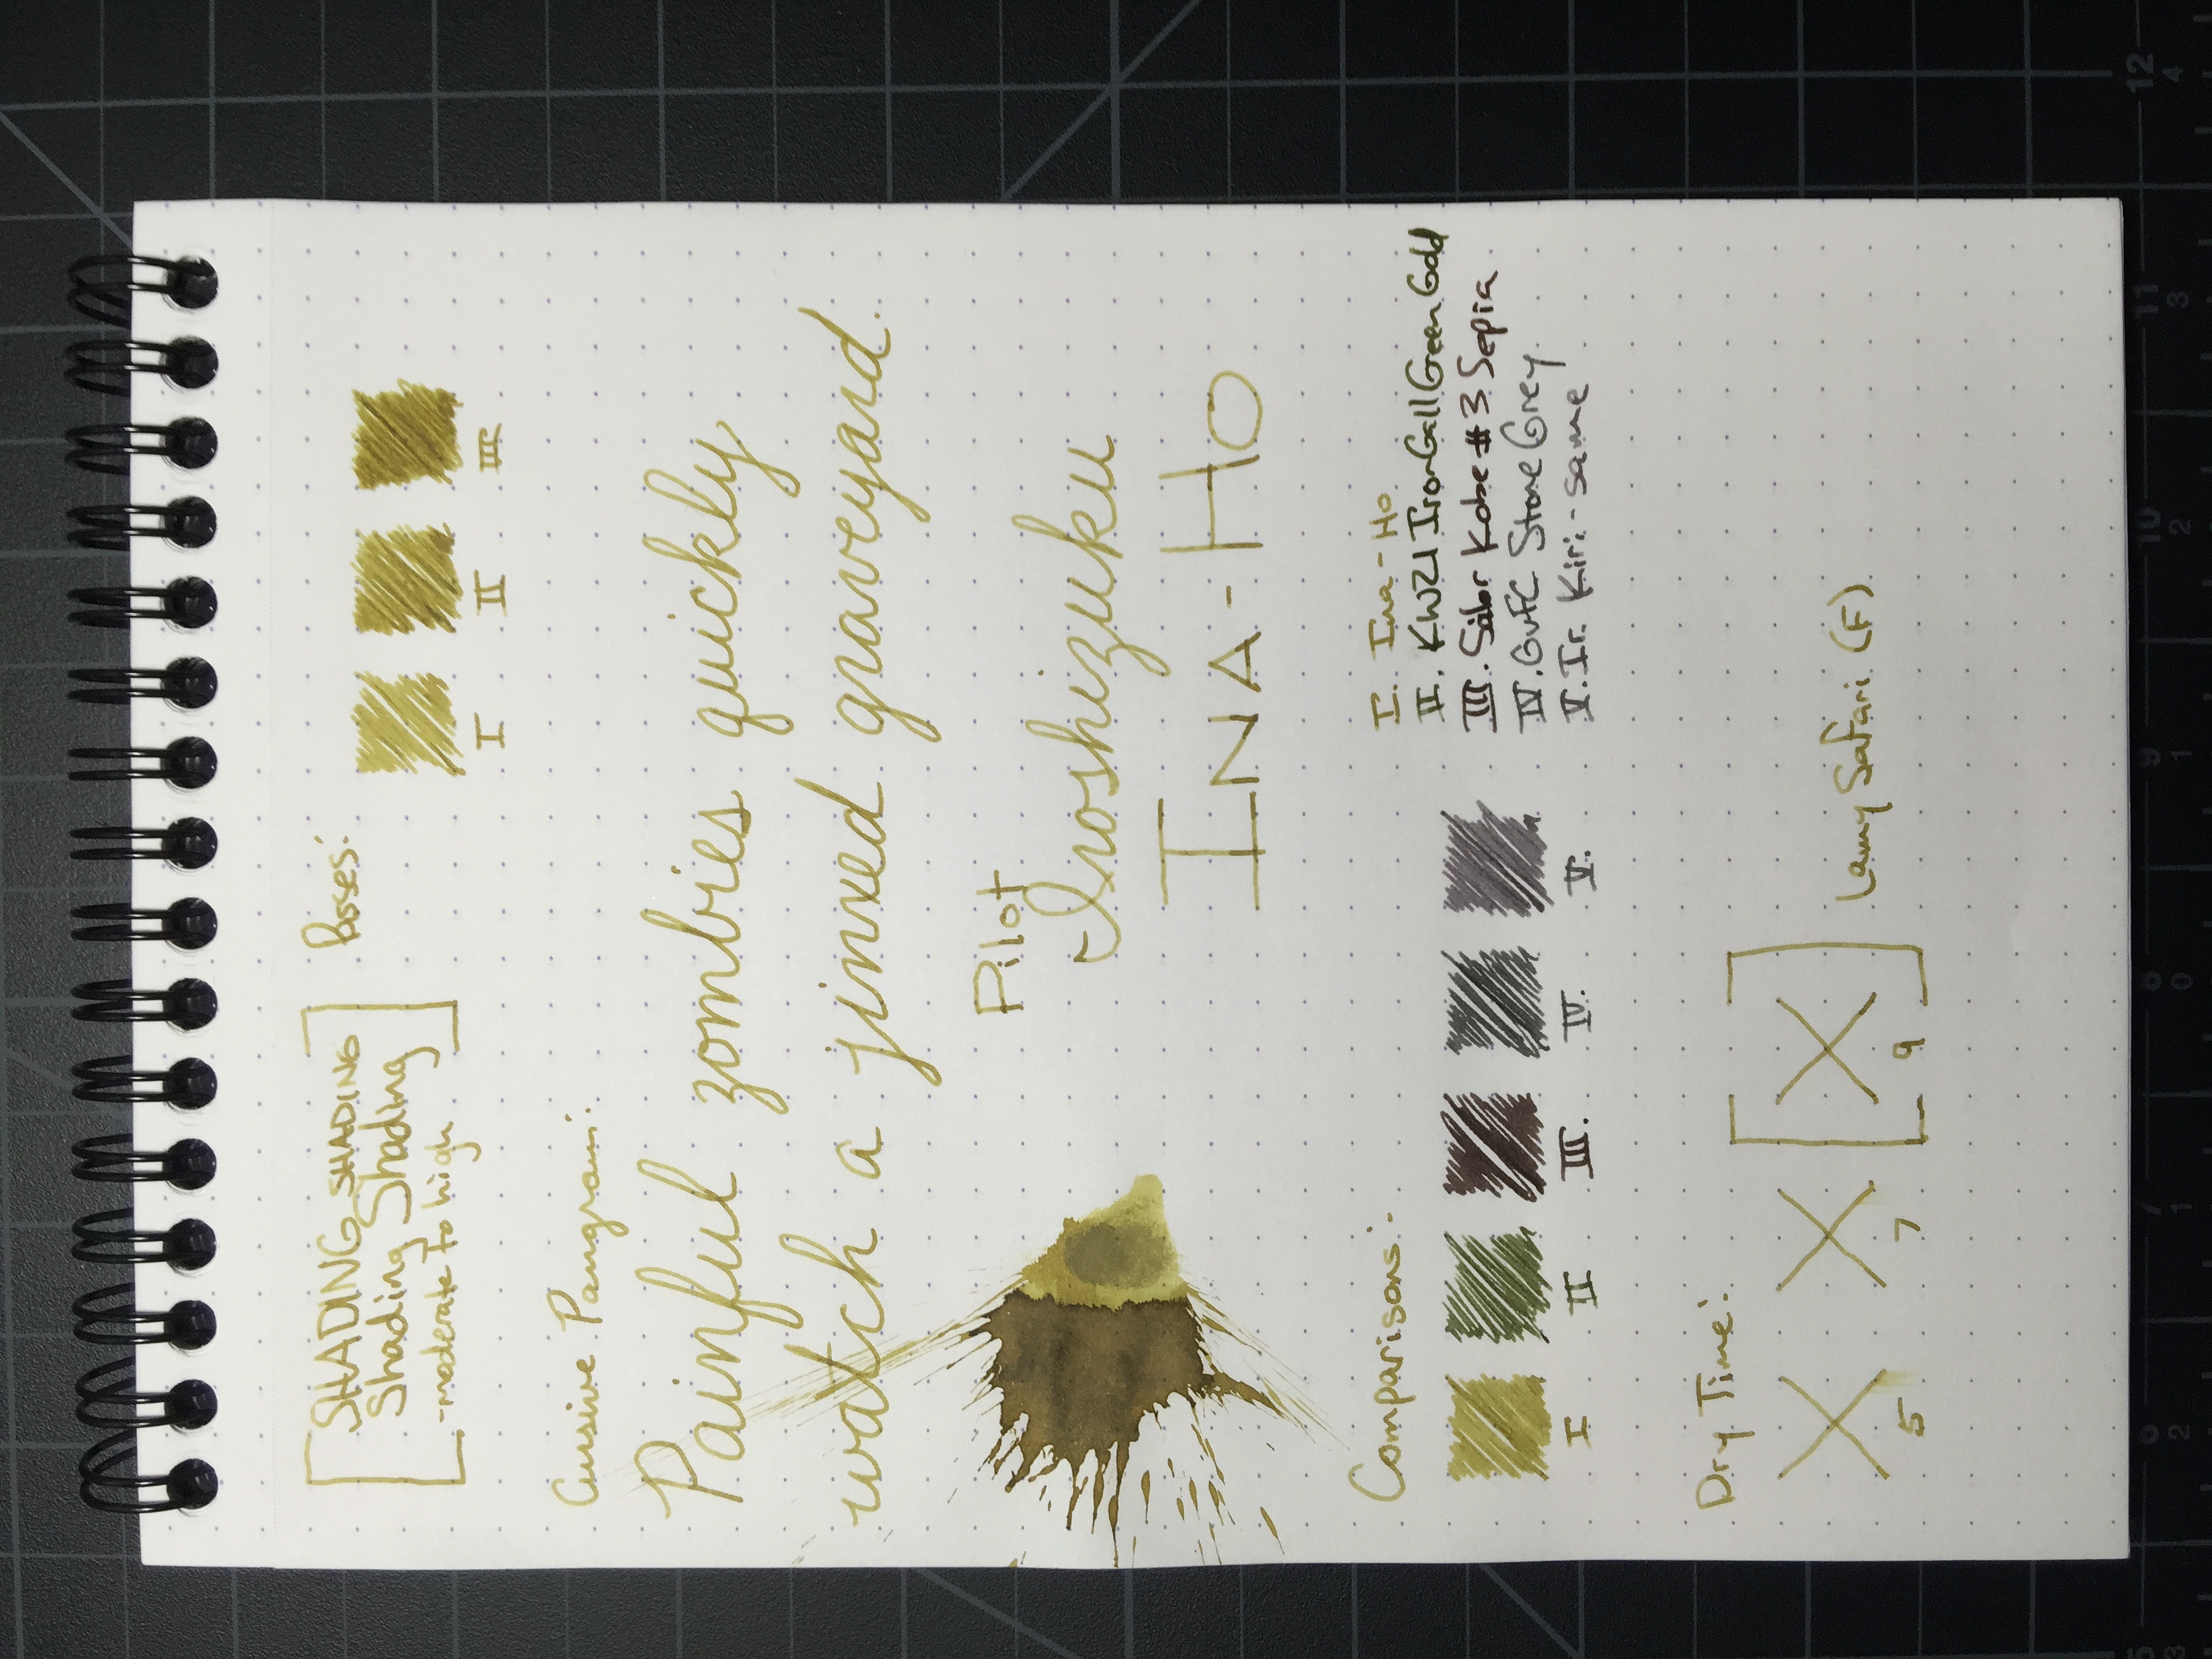 SHADING SHADING
Shading Shading
-moderate to high
Passes:
I II III
Cursive Pangram:
Painful zombies quickly
watch a jinxed graveyard.
Pilot
Iroshizuku
INA-HO
Comparisons:
I II III. IV. V.
I. Ina-Ho
II. KWZI Iron Gall Green Gold
III. Sailor Kobe #3 Sepia
IV. GvFC Stone Grey
V. Ir. Kiri-same
Dry Time:
X X [X]
5 7 9
Lamy Safari (F)
12
11
10
9
8
7
6
5
4
3
2
1
0
1
2
3